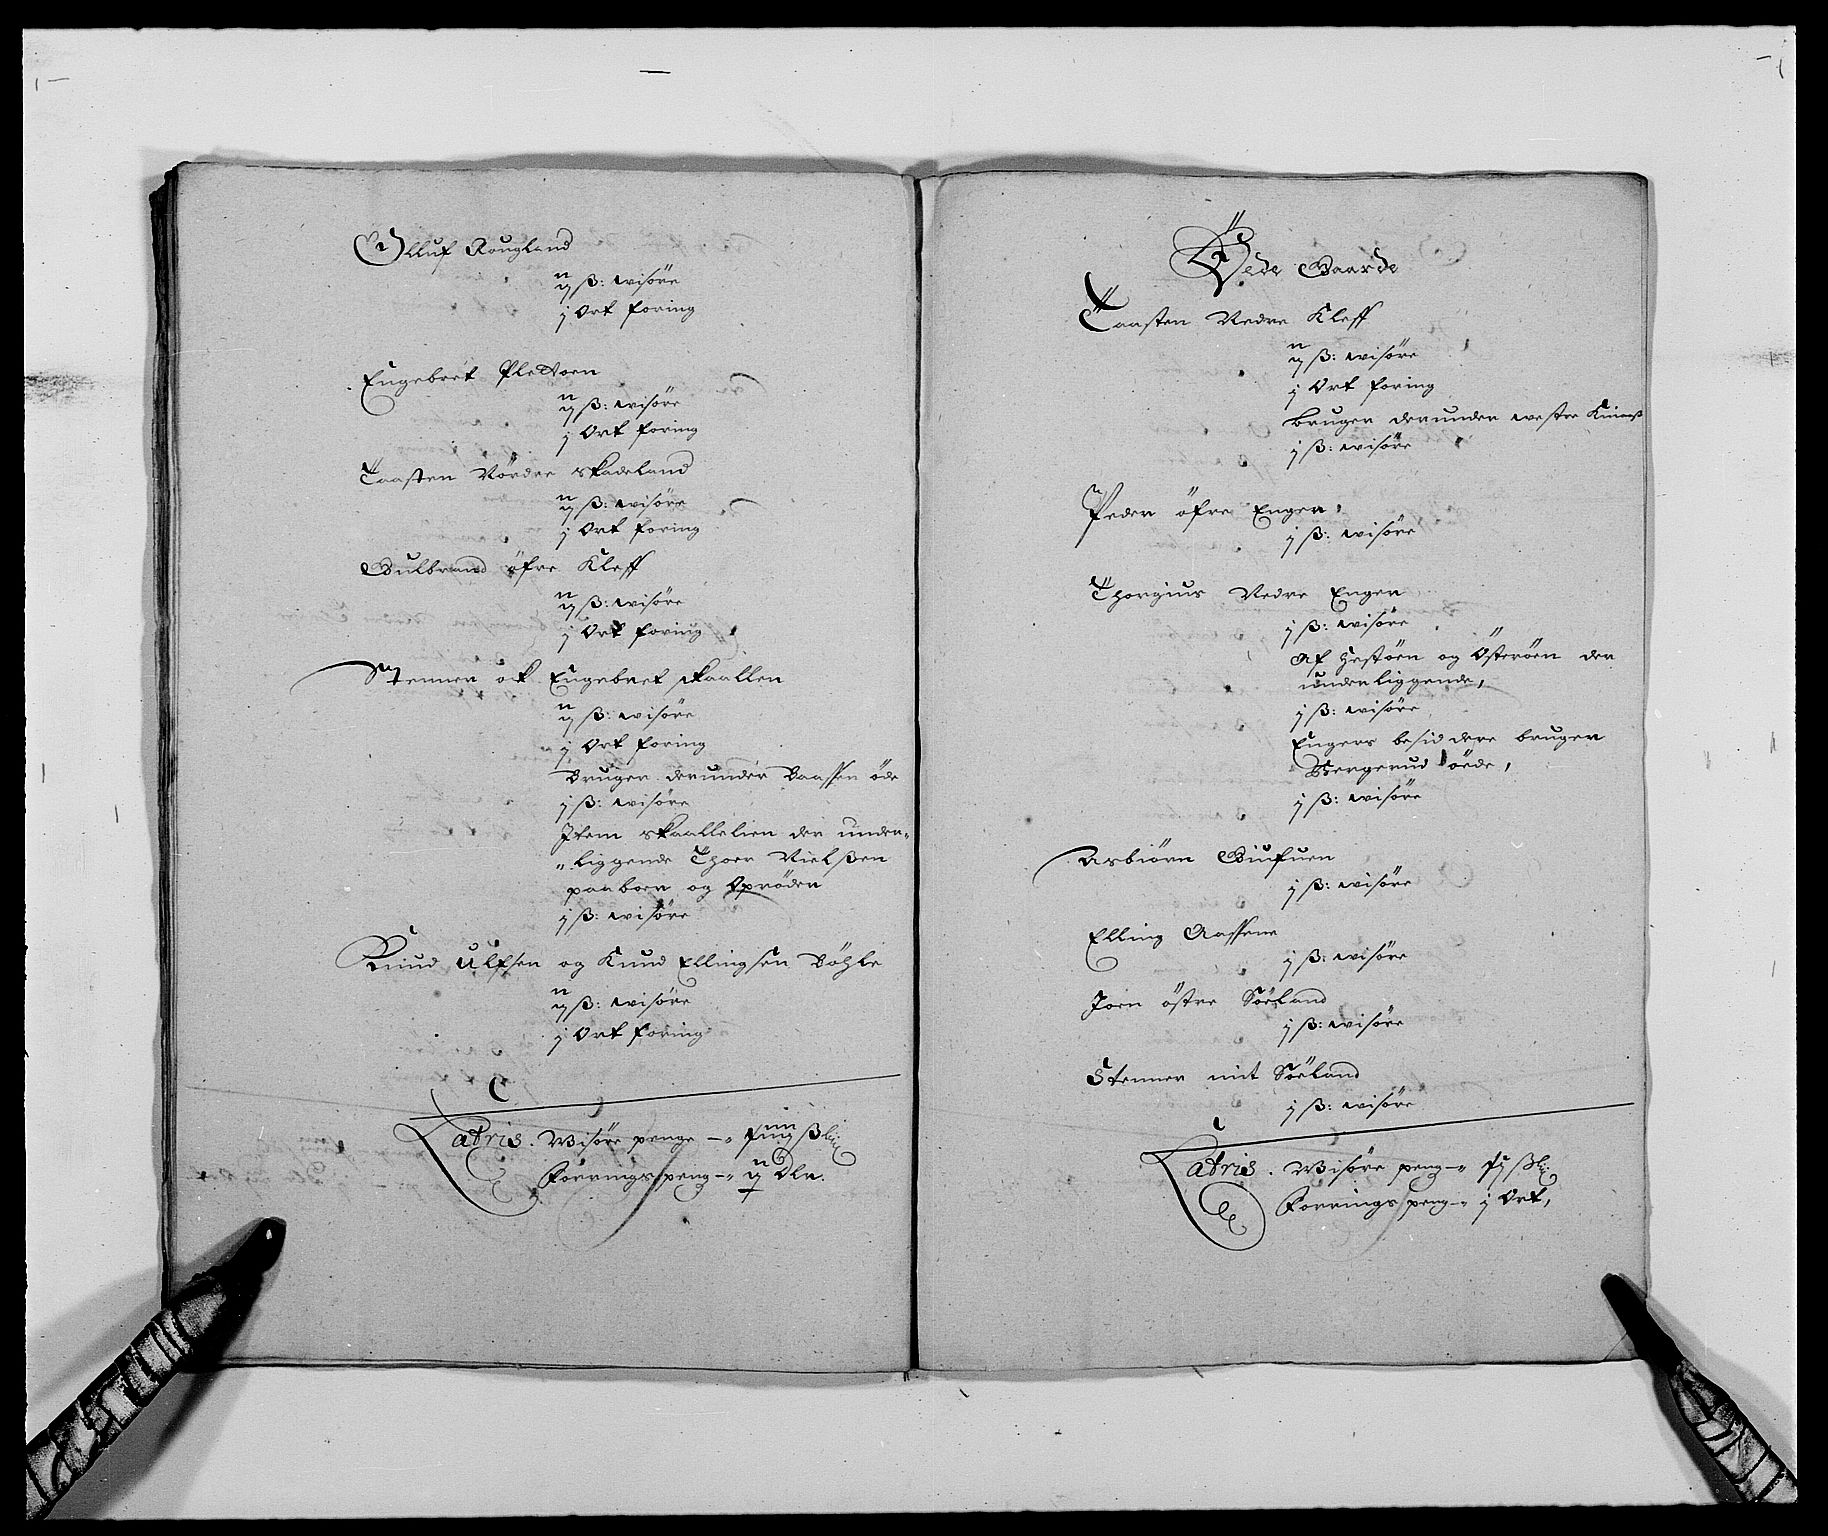 Olluf Rougland
ij ß: wisöre
j Ort foring
Engebret Plettoen
ij ß: wisöre
j Ort foring
Taasten Nördre skadeland
ij ß: wisöre
j Ort foring
Gulbrand öfre Kleff
ij ß: wisöre
j Ort foring
Stenner ock Engebret skaallen
ij ß: wisöre
j Ort foring
Bruger derunder Baassen öde
j ß: wisöre
Item skaallelien der under-
liggende Thoer Nielßen
paaboer og Oprÿder
j ß: wisöre
Knud Ulfsen og Knud Ellingsen Böhle
ij ß: wisöre
j Ort foring
Latris. Wisöre penge
Forrings peng Dlr.
Öede Gaarde
Taasten Nedre Kleff
ij ß: wisöre
j Ort foring
Bruger derunder westre
j ß: wisöre
Peder öfre Enger,
j ß: wisöre
Thorgius Nedre Enger
j ß: wisöre
Af Hestöen og Österöen der
underliggende,
j ß: wisöre
Engers besiddere bruger
Bergerud öede,
j ß: wisöre
Asbiörn
j ß: wisöre
Elling Aassene
j ß: wisöre
Joen östre Söeland
j ß: wisöre
Stenner mit Söeland
j ß: wisöre
Latris. Wisöre peng
Forrings peng j Ort,